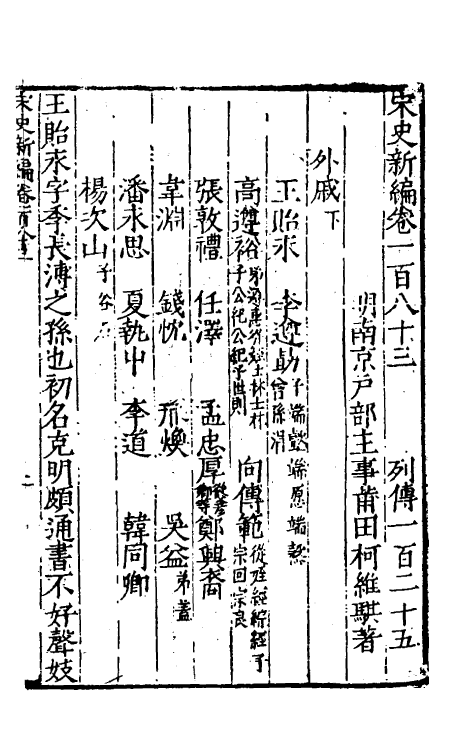 宋史新編卷一百八十三 列傳一百二十五
明南京戶部主事莆田柯維騏著
外戚下
王貽永 李遵勗子端懿端愿端慤曾孫淵
高遵裕弟遵惠從姪士林士村子公紀公紀子世則 向傳範從姪經綜經子宗回宗良
張敦禮 任澤 孟忠厚 鄭興裔
韋淵 錢忱 邢煥 吳益弟蓋
潘永思 夏執中 李道 韓同卿
楊次山子谷石
王貽永字季長溥之孫也初名克明頗通書不好聲妓
宋史新編卷一百八十三